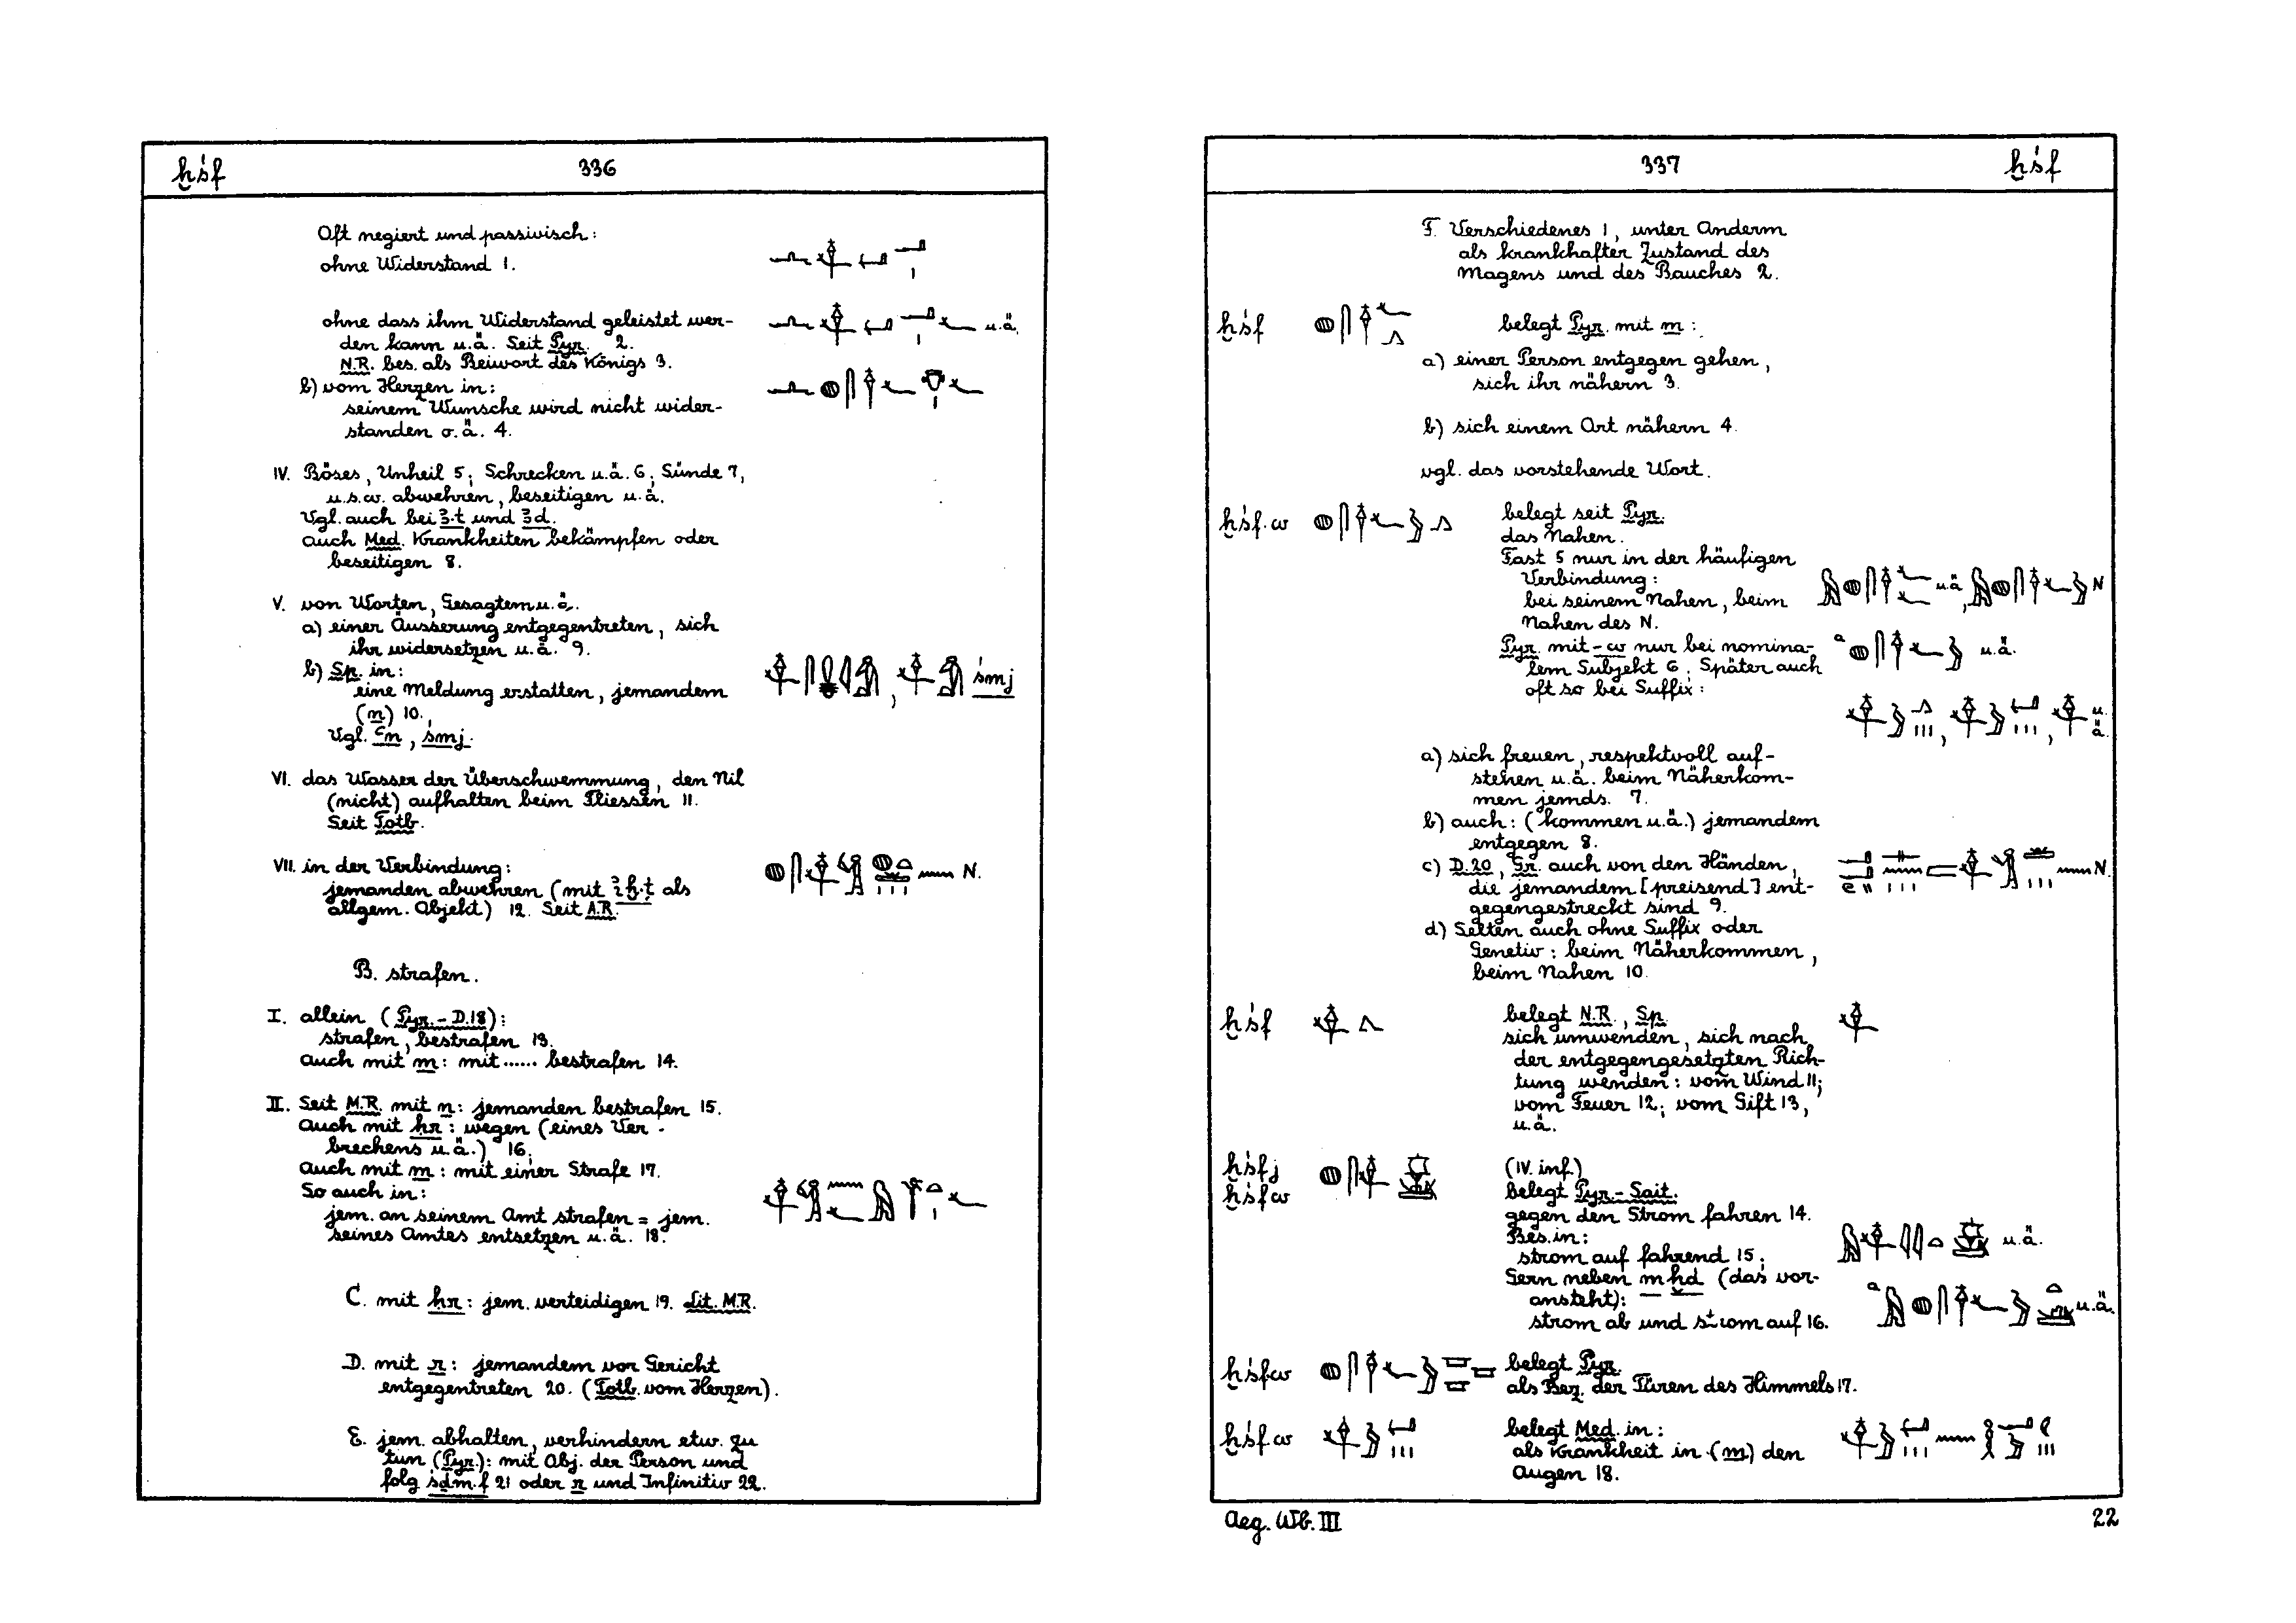 ḫśf 336
Oft negiert und passivisch:
ohne Widerstand 1.
ohne dass ihm Widerstand geleistet wer-
den kann u.ä. Seit Pyr. 2.
u.ä.
N.R. bes. als Beiwort des Königs 3.
b) vom Herzen in:
seinem Wunsche wird nicht wider-
standen o.ä. 4.
IV. Böses, Unheil 5; Schrecken u.ä. 6; Sünde 7,
u.s.w. abwehren, beseitigen u.ä.
Vgl. auch bei ꜣ.t und ꜣd.
auch Med. Krankheiten bekämpfen oder
beseitigen 8.
V. von Worten, Gesagtem u.ä.
a) einer Äusserung entgegentreten, sich
ihr widersetzen u.ä. 9.
b) Sp. in:
śmj
eine Meldung erstatten, jemandem
(n) 10.
Vgl. ꜥn, śmj.
VI. das Wasser der Überschwemmung, den Nil
(nicht) aufhalten beim Fliessen 11.
Seit Totb.
VII. in der Verbindung:
N.
jemanden abwehren (mit als
allgem. Objekt) 12. Seit A.R.
B. strafen.
I. allein (Pyr. - D.18):
strafen, bestrafen 13.
auch mit m: mit ...... bestrafen 14.
II. Seit M.R. mit n: jemanden bestrafen 15.
auch mit ḥr: wegen (eines Ver-
brechens u.ä.) 16.
auch mit m: mit einer Strafe 17.
So auch in:
jem. an seinem Amt strafen = jem.
seines Amtes entsetzen u.ä. 18.
C. mit ḥr: jem. verteidigen 19. Lit. M.R.
D. mit r: jemandem vor Gericht
entgegentreten 20. (Totb. vom Herzen).
E. jem. abhalten, verhindern etw. zu
tun (Pyr.): mit Obj. der Person und
folg śḏm.f 21 oder r und Infinitiv 22.
337 ḫśf
F. Verschiedenes 1, unter Anderm
als krankhafter Zustand des
Magens und des Bauches 2.
ḫśf belegt Pyr. mit m:
a) einer Person entgegen gehen,
sich ihr nähern 3.
b) sich einem Ort nähern 4.
vgl. das vorstehende Wort.
ḫśf.w belegt seit Pyr.
das Nahen.
Fast 5 nur in der häufigen
Verbindung:
u.ä., N
bei seinem Nahen, beim
Nahen des N.
Pyr. mit -w nur bei nomina-
a u.ä.
lem Subjekt 6. Später auch
oft so bei Suffix:
u.
ä.
a) sich freuen, respektvoll auf-
stehen u.ä. beim Näherkom-
men jemds. 7.
b) auch: (kommen u.ä.) jemandem
entgegen 8.
c) D.20, Gr. auch von den Händen,
N.
die jemandem [preisend] ent-
gegengestreckt sind 9.
d) Selten auch ohne Suffix oder
Genetiv: beim Näherkommen,
beim Nahen 10.
ḫśf belegt N.R., Sp.
sich umwenden, sich nach
der entgegengesetzten Rich-
tung wenden: vom Wind 11;
vom Feuer 12; vom Gift 13,
u.ä.
ḫśfj (IV. inf.)
ḫśfw belegt Pyr. - Sait.
gegen den Strom fahren 14.
Bes. in:
u.ä.
strom auf fahrend 15;
Gern neben m ḫd (das vor-
ansteht):
a u.ä.
strom ab und strom auf 16.
ḫśfw belegt Pyr.
als Bez. der Türen des Himmels 17.
ḫśf.w belegt Med. in:
als Krankheit in (m) den
Augen 18.
Aeg. Wb. III 22